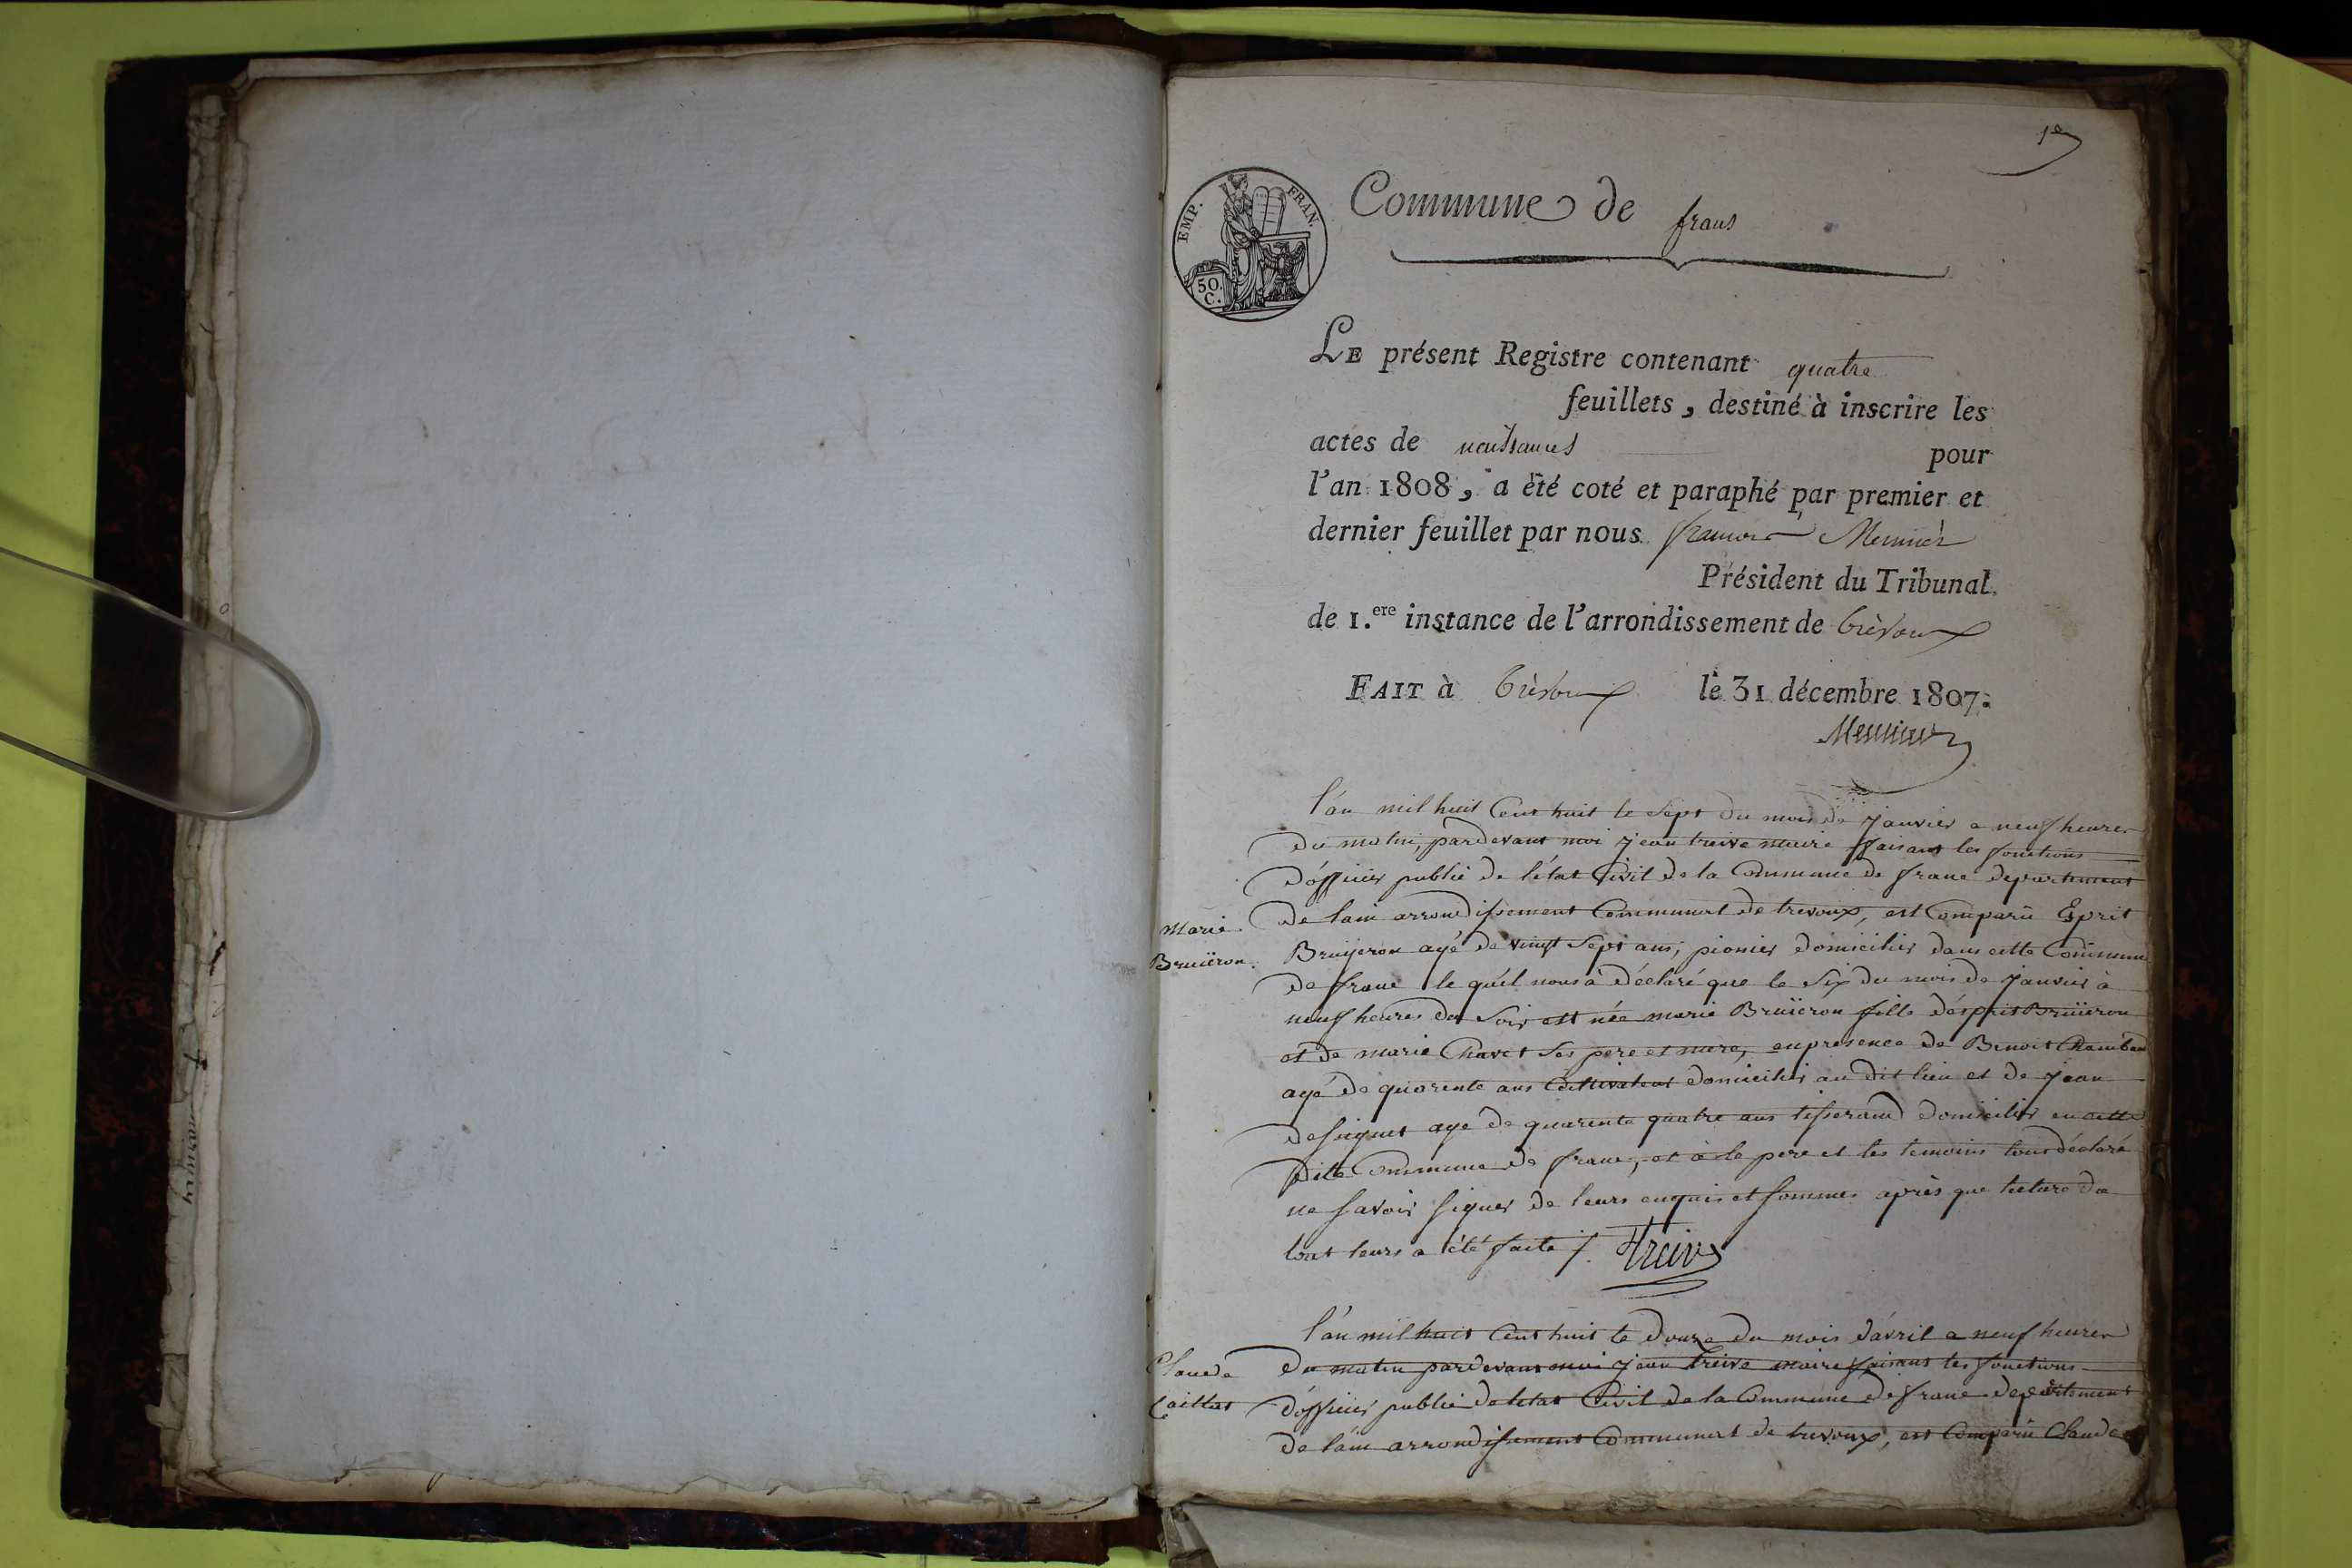 1er
EMP. FRAN.
50 C.
Commune de frans
LE présent Registre contenant quatre
feuillets, destiné à inscrire les
actes de naissances pour
l'an 1808, a été coté et paraphé par premier et
dernier feuillet par nous françois Meunier
Président du Tribunal
de 1.ere instance de l'arrondissement de trèvoux
FAIT à trèvoux le 31 décembre 1807.
Meunier
l'an mil huit Cent huit le Sept du mois de janvier a neuf heures
du matin, pardevant moi jean treive maire faisant les fonctions
d'officier public de l'état Civil de la Commune de franc departement
de lain arrondissement Communal de trevoux, est Comparu Esprit
Marie
Bruÿeron agé de vingt Sept ans, pionier domicilié dans cette Commune
Bruïeron.
de franc le quél nous à déclaré que le Six du mois de janvier à
neuf heures du Soir est née marie Bruïeron fille d'ésprit Bruïeron
et de marie Chavet Ses pere et mere, en presence de Benoit
agé de quarente ans Cultivateur domicilié au dit lieu et de jean
agé de quarente quatre ans tisserand domicilié en cette
dite Commune de franc, et à le pere et les temoins tous déclaré
ne Savoir Signer de leurs enquis et Sommes après que lecture du
tout leurs a été faite /. Treive
l'an mil huit Cent huit le douze du mois d'avril a neuf heures
Claude
du matin pardevant moi jean treive maire faisant les fonctions
Caillat
d'officier public de letat Civil de la Commune de franc departement
de l'ain arrondissement Communal de trevoux, est Comparu Claude